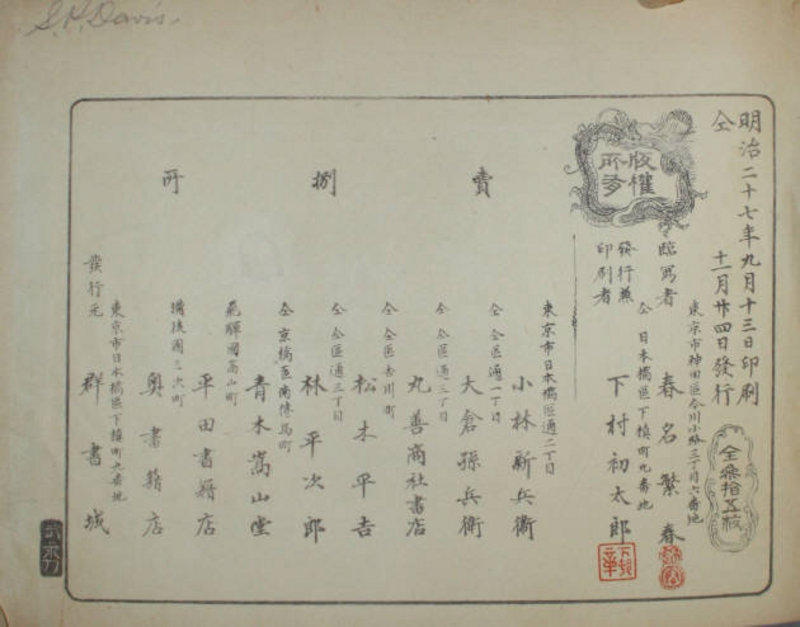 S.H. Davis.
明治二十七年九月十三日印刷
仝 十一月廿四日發行
版權所有
東京市神田區今川小路三丁目六番地
臨寫者 春名繁春
仝 日本橋區下槇町九番地
發行兼印刷者 下村初太郎
賣捌所
東京市日本橋區通二丁目
小林新兵衛
仝 仝區通一丁目
大倉孫兵衛
仝 仝區通三丁目
丸善商社書店
仝 仝區吉川町
松木平吉
仝 仝區通三丁目
林平次郎
仝 京橋區南傳馬町
青木嵩山堂
飛驒國高山町
平田書籍店
奧書籍店
東京市日本橋區下槇町九番地
發行元 群書城